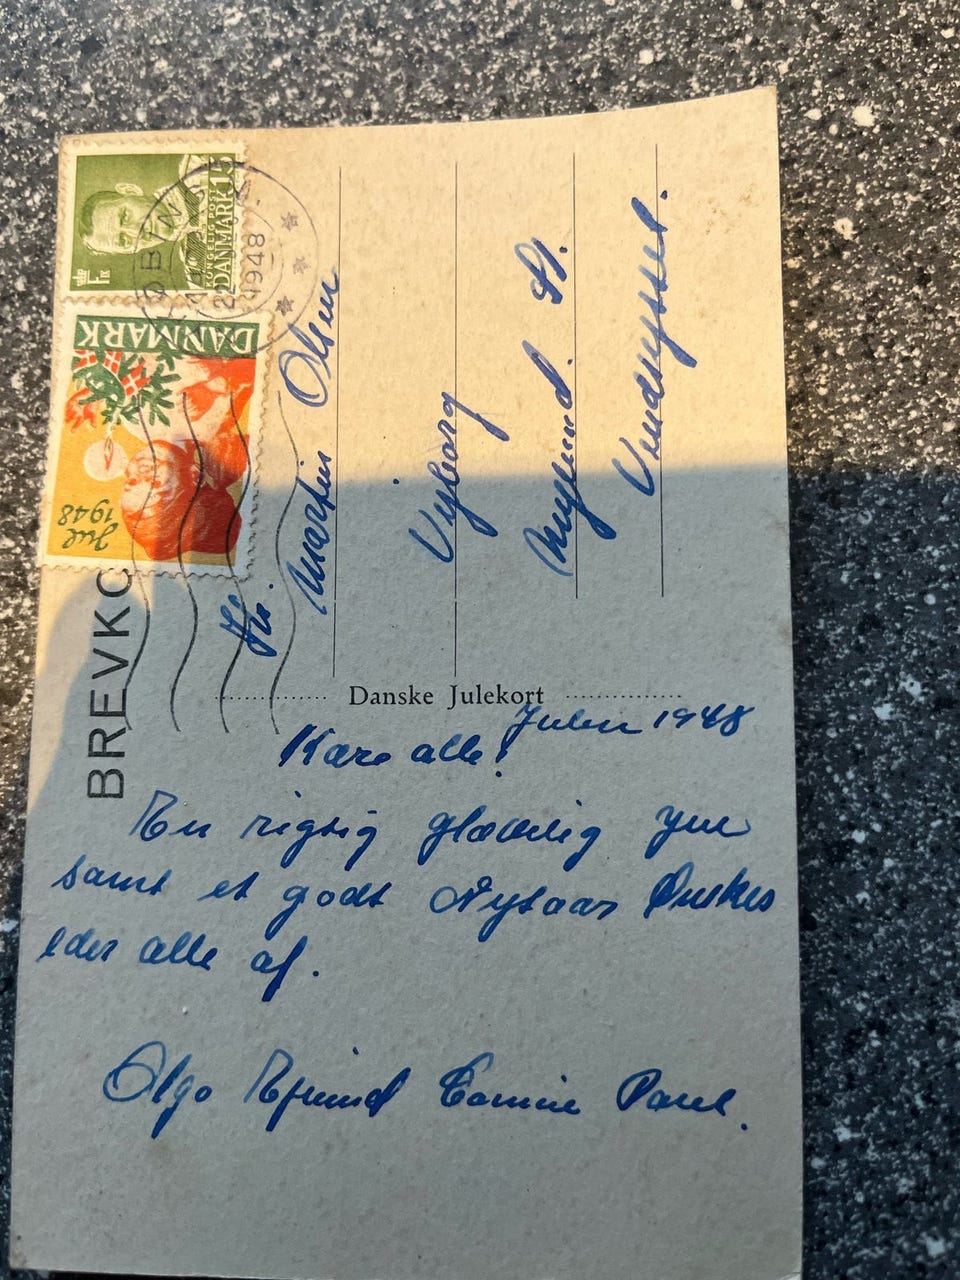 DANMARK 15
DANMARK
Jul
1948
1948
BREVKO
Hr. Martin Olsen
Vyborg
St.
Vendsyssel.
Danske Julekort
Julen 1948
Kære alle!
En rigtig glædelig Jul
samt et godt Nytaar Ønskes
eder alle af.
Olga Ejvind Paul.